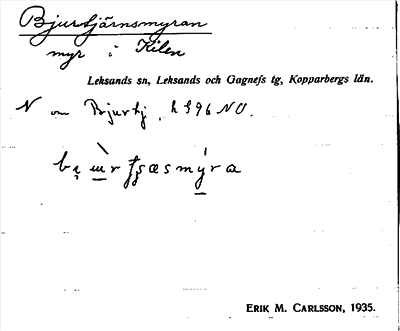 Bjurtjärnsmyran
myr i Kilen
Leksands sn, Leksands och Gagnefs tg, Kopparbergs län.
N om Bjurtj, h 396 NO.
ERIK M. CARLSSON, 1935.